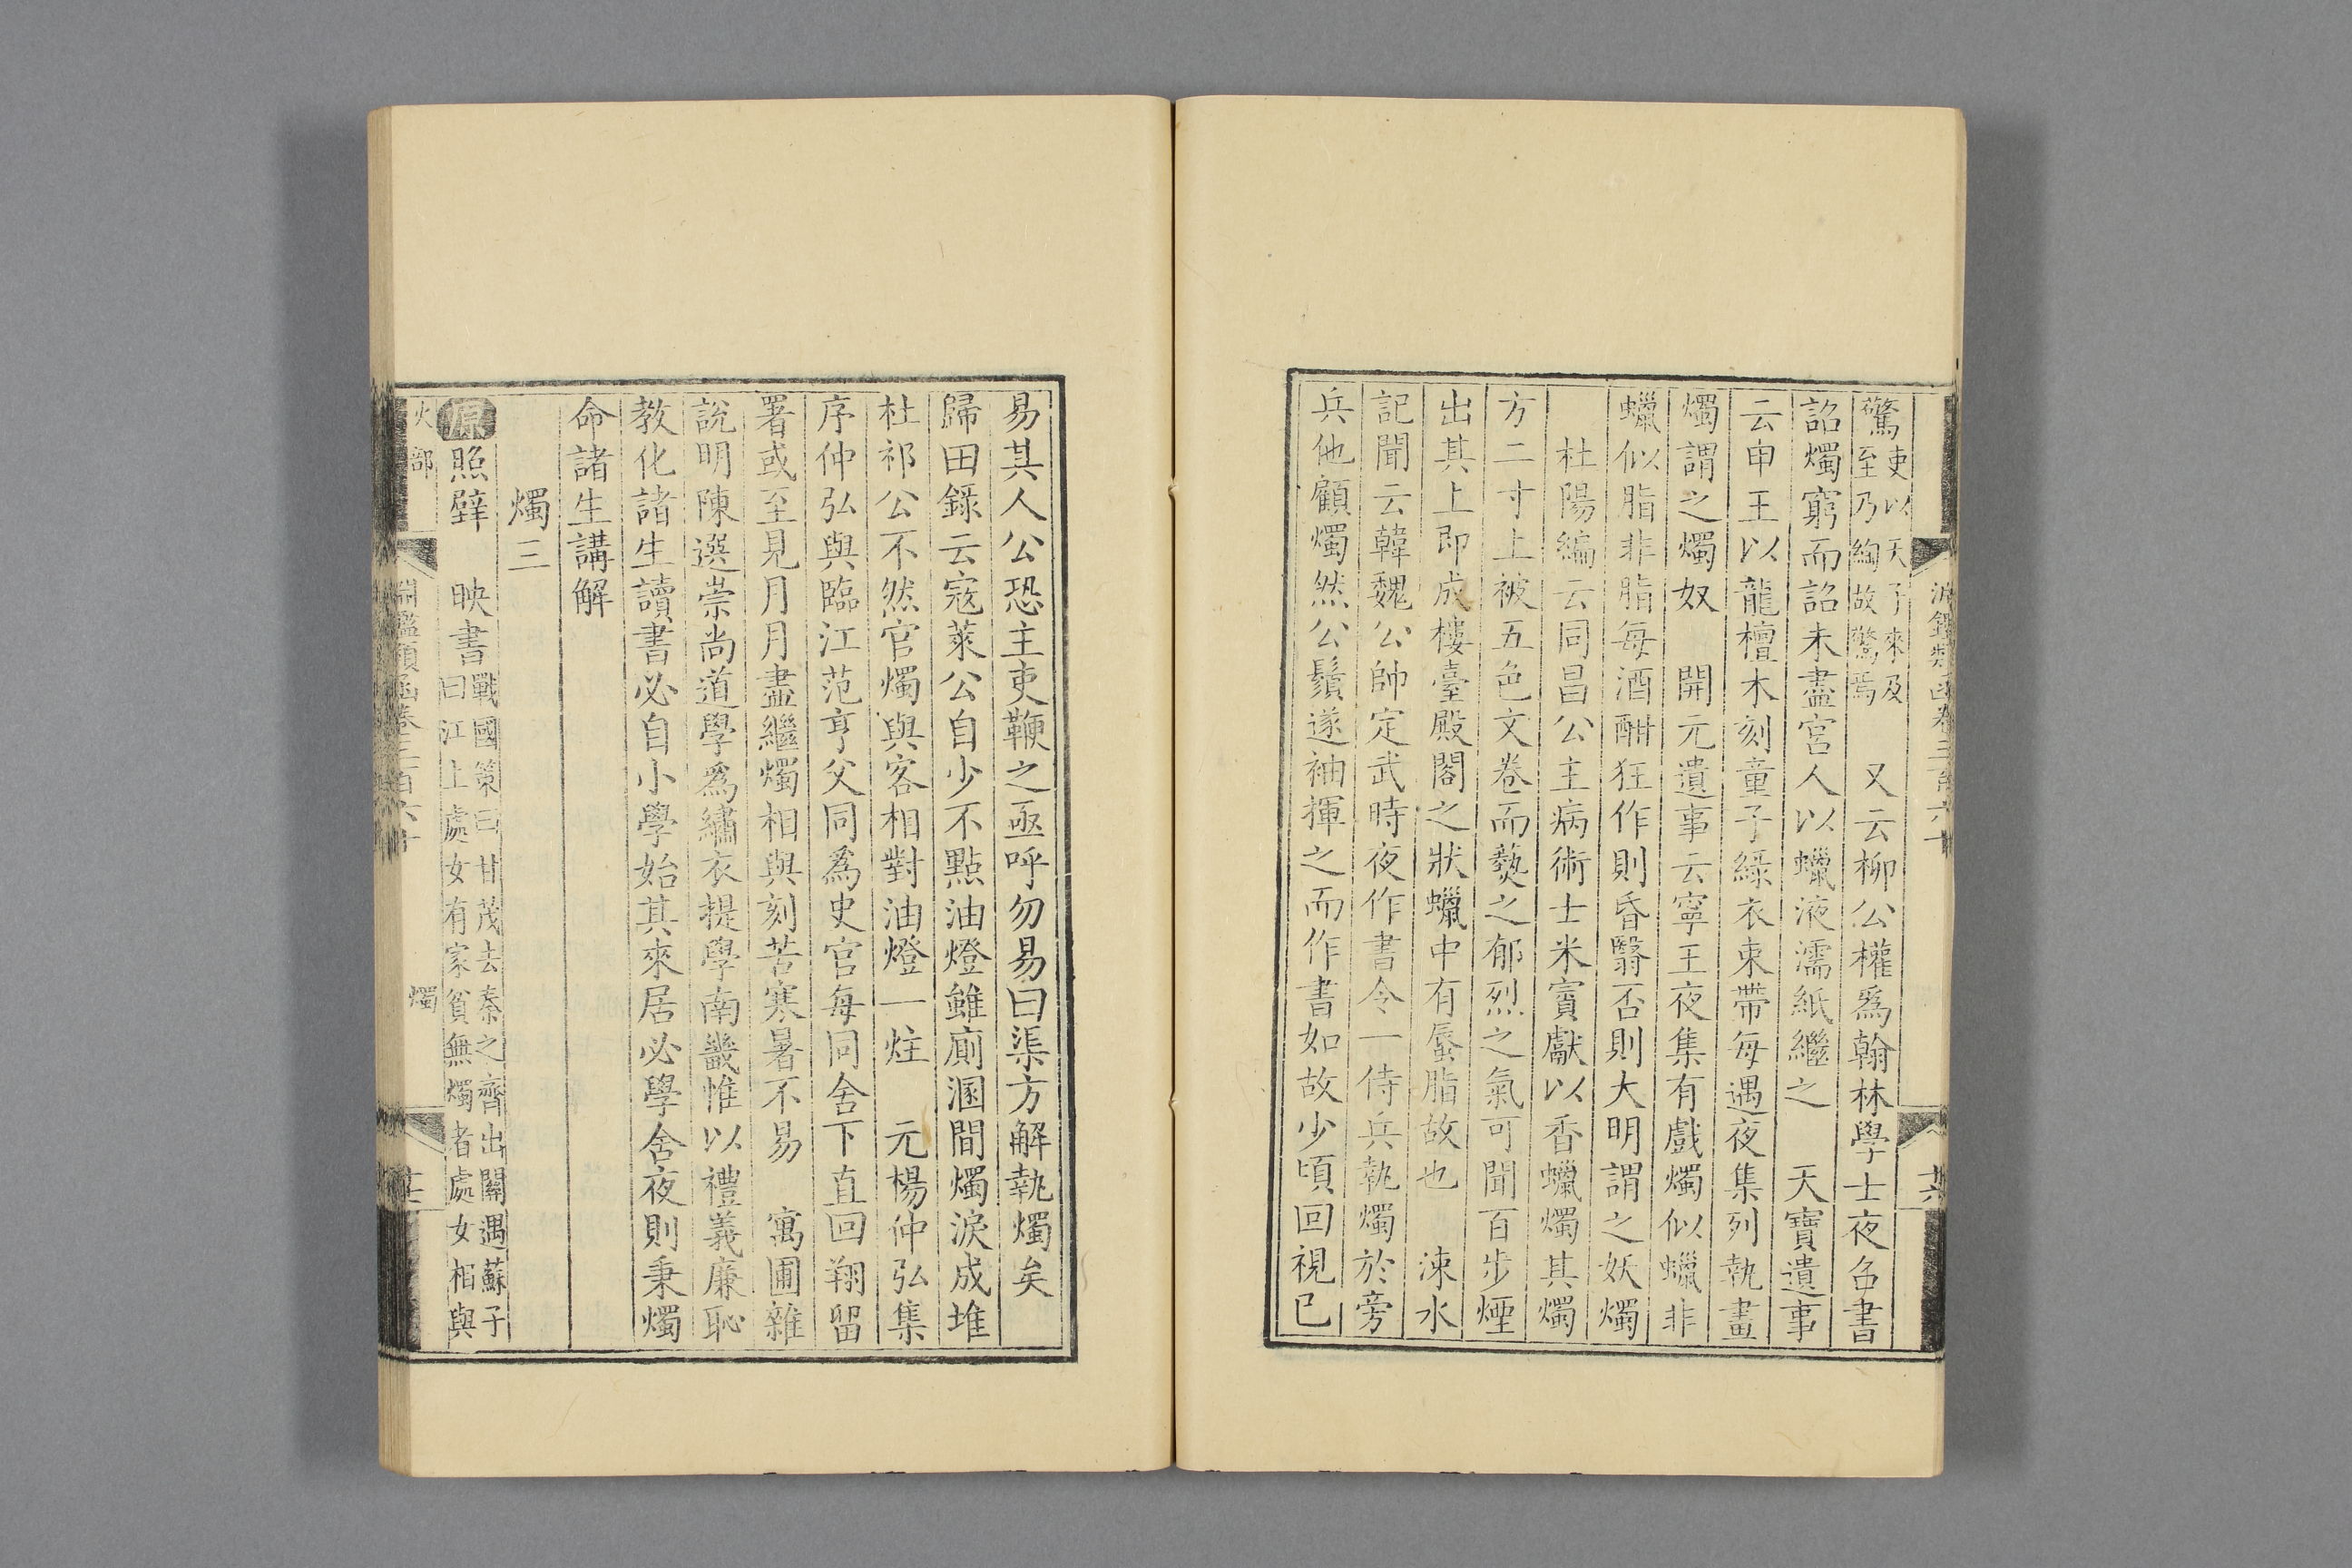 淵鑑類函卷三百六十
驚吏以天子來及
至乃綯故驚焉　又云柳公權爲翰林學士夜召書
詔燭窮而詔未盡宮人以蠟液濡紙繼之　天寶遺事
云申王以龍檀木刻童子綠衣束帶每遇夜集列執畫
燭謂之燭奴　開元遺事云寧王夜集有戲燭似蠟非
蠟似脂非脂每酒酣狂作則昏翳否則大明謂之妖燭
杜陽編云同昌公主病術士米賓獻以香蠟燭其燭
方二寸上被五色文卷而爇之郁烈之氣可聞百步煙
出其上即成樓臺殿閣之狀蠟中有蜃脂故也　涑水
記聞云韓魏公帥定武時夜作書令一侍兵執燭於旁
兵他顧燭然公鬚遂袖揮之而作書如故少頃回視已
易其人公恐主吏鞭之亟呼勿易曰渠方解執燭矣
歸田錄云寇萊公自少不點油燈雖廁溷間燭淚成堆
杜祁公不然官燭與客相對油燈一炷　元楊仲弘集
序仲弘與臨江范亨父同爲史官每同舍下直回翔留
署或至見月月盡繼燭相與刻苦寒暑不易　寓圃雜
說明陳選崇尚道學爲繡衣提學南畿惟以禮義廉恥
教化諸生讀書必自小學始其來居必學舍夜則秉燭
命諸生講解
燭三
原照壁　映書戰國策曰甘茂去秦之齊出關遇蘇子
曰江上處女有家貧無燭者處女相與
火部　淵鑑類函卷三百六十　燭